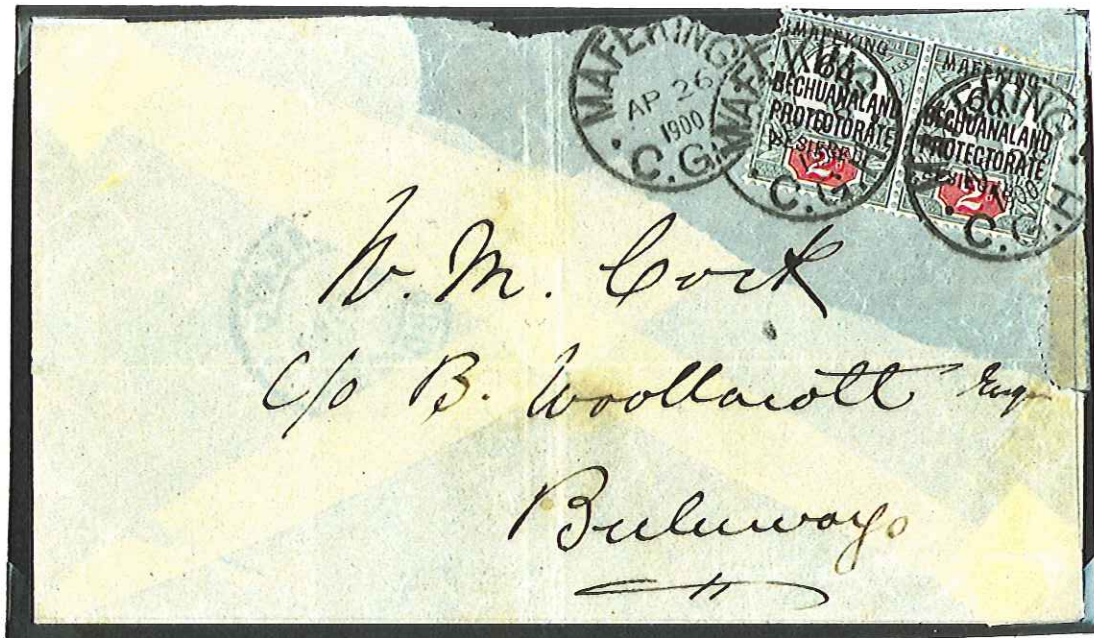 MAFEKING
AP 26
1900
C.G.
MAFEKING
6d
BECHUANALAND
PROTECTORATE
BESIEGED
2
C.G.
MAFEKING
6d
BECHUANALAND
PROTECTORATE
BESIEGED
2
C.G.H
W. M. Cock
c/o B. Woollacott Esqr
Buluwayo